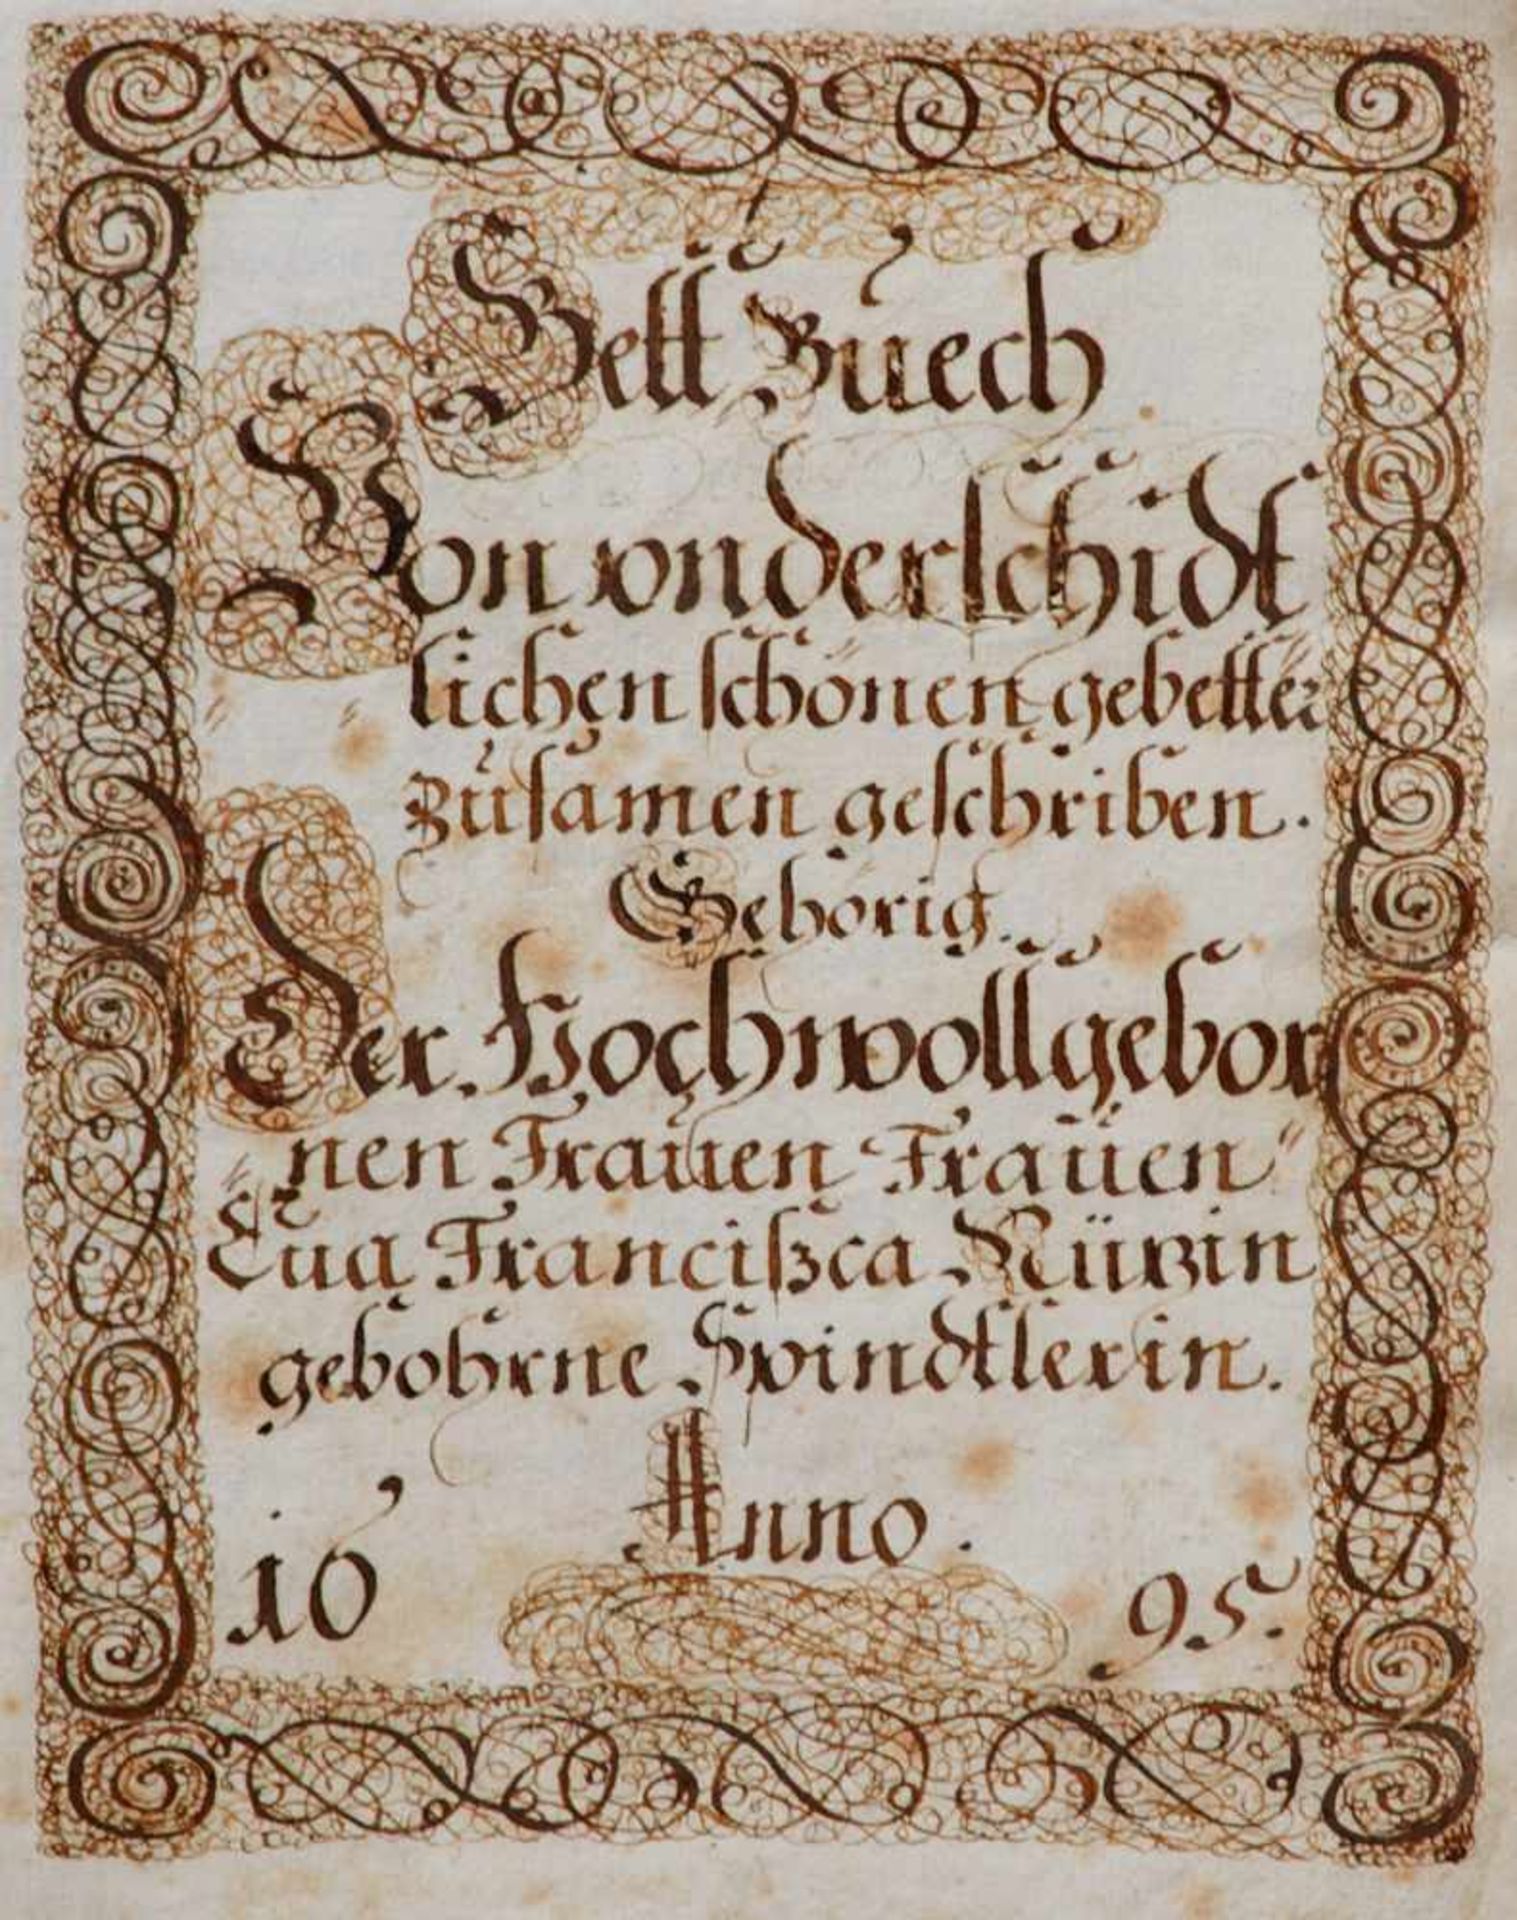 Bett Buech
Von vnderschidt
lichen schönen gebetter
zusamen geschriben.
Gehörig.
Der Hochwollgebor
nen Frauen Frauen
Eua Francißca
gebohrne Spindtlerin.
Anno.
16 95.